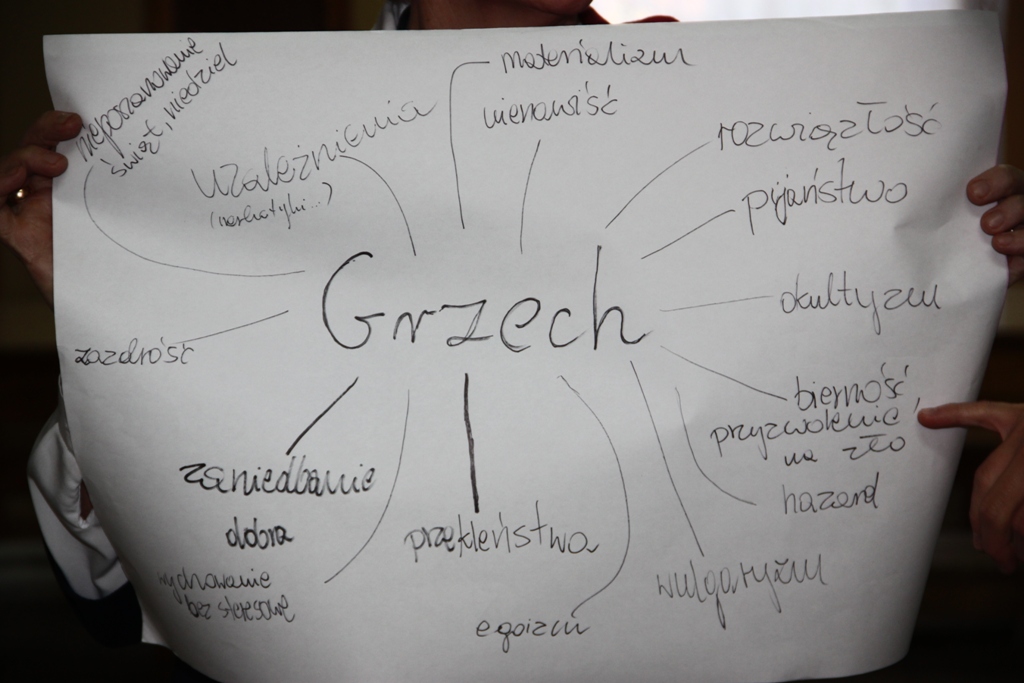 nieposzanowanie
świąt, niedziel
uzależnienia
(narkotyki...)
materializm
nienawiść
rozwiązłość
pijaństwo
okultyzm
Grzech
zazdrość
bierność,
przyzwolenie
na zło
hazard
zaniedbanie
dobra
przekleństwa
wychowanie
bez stresowe
egoizm
wulgaryzm